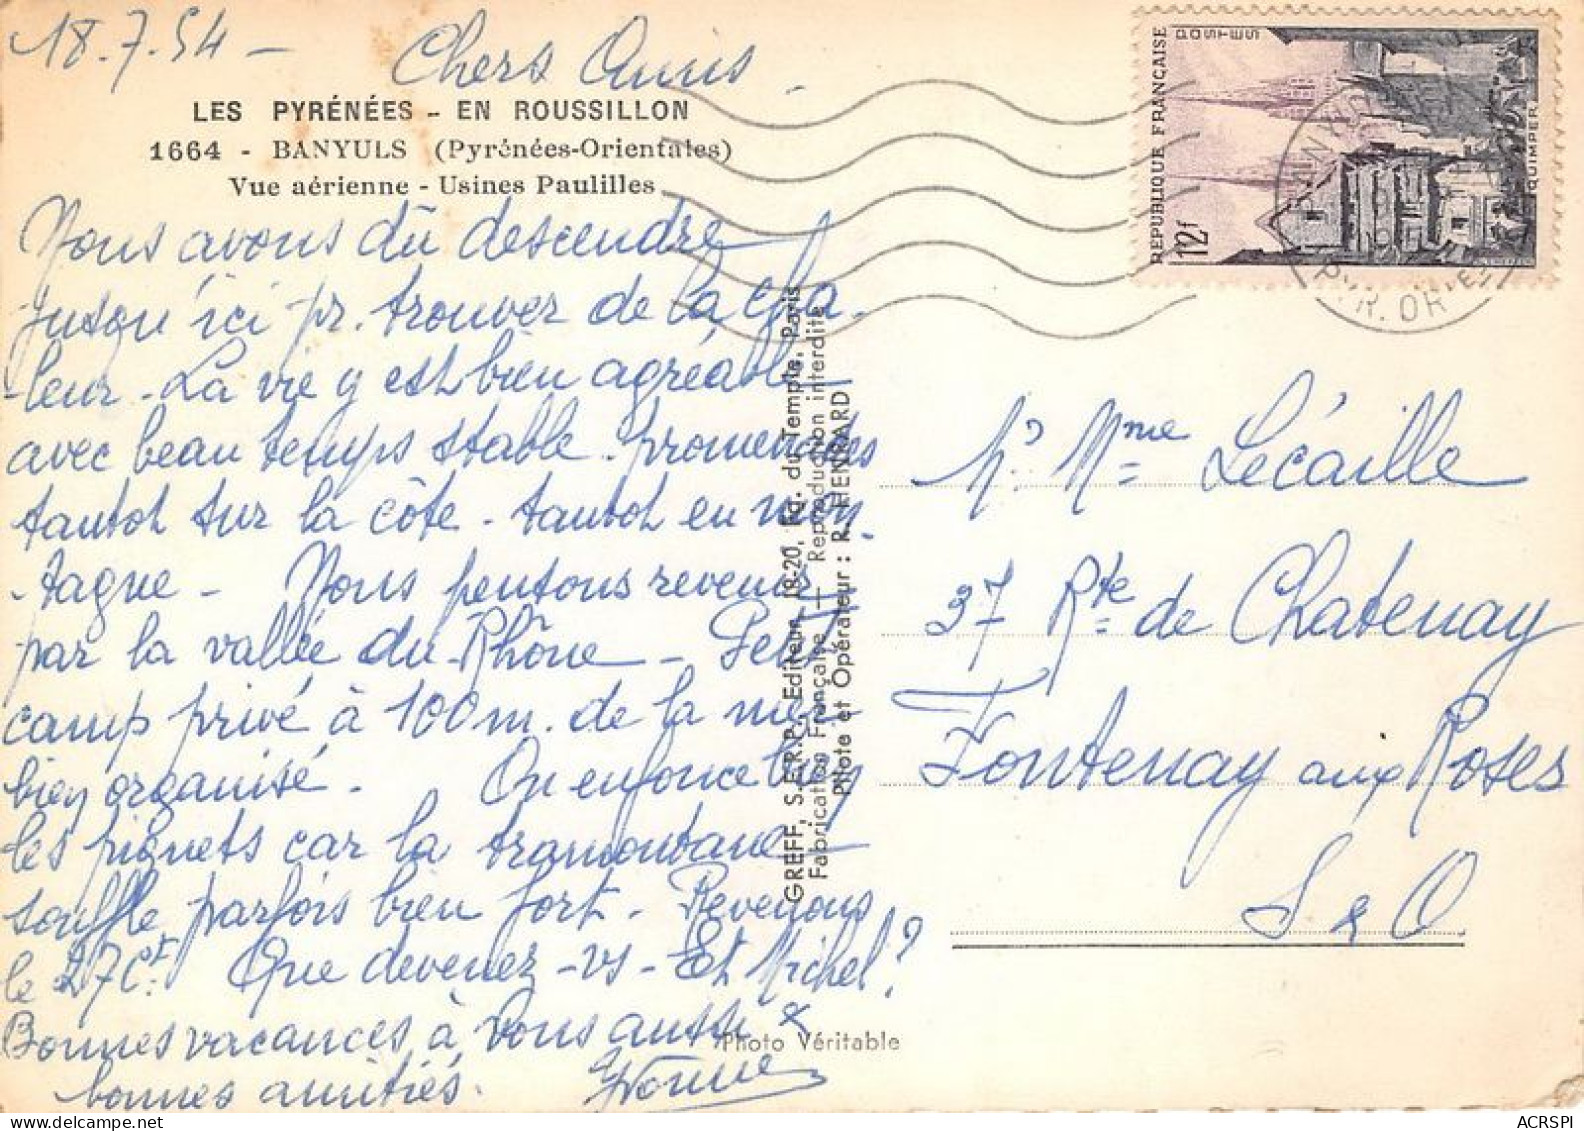 18.7.54 - Chers Amis.
LES PYRÉNÉES - EN ROUSSILLON
1664 - BANYULS (Pyrénées-Orientales)
Vue aérienne - Usines Paulilles
Nous avons dû descendre
jusqu'ici pr. trouver de la cha-
-leur - La vie y est bien agréable
avec beau temps stable. promenades
tantot sur la côte - tantot en mon-
-tagne - Nous pensons revenir
par la vallée du Rhône - Petit
camp privé à 100m. de la mer
bien organisé. On enfonce bien
les piquets car la tramontane
souffle parfois bien fort - Revenons
le 27 Ct. Que devenez-vs - Et Michel?
Bonnes vacances à vous aussi &
bonnes amitiés. Yvonne
Photo Véritable
GREFF, S.E.R.P., Editeur, 18-20, Fg. du Temple, Paris
Fabrication Française — Reproduction interdite
Pilote et Opérateur : R. HENRARD
RÉPUBLIQUE FRANÇAISE
POSTES
12f
QUIMPER
PYR. OR LES
Mr Mme Lecaille
37 Rte de Chatenay
Fontenay aux Roses
S & O
ACRSPI